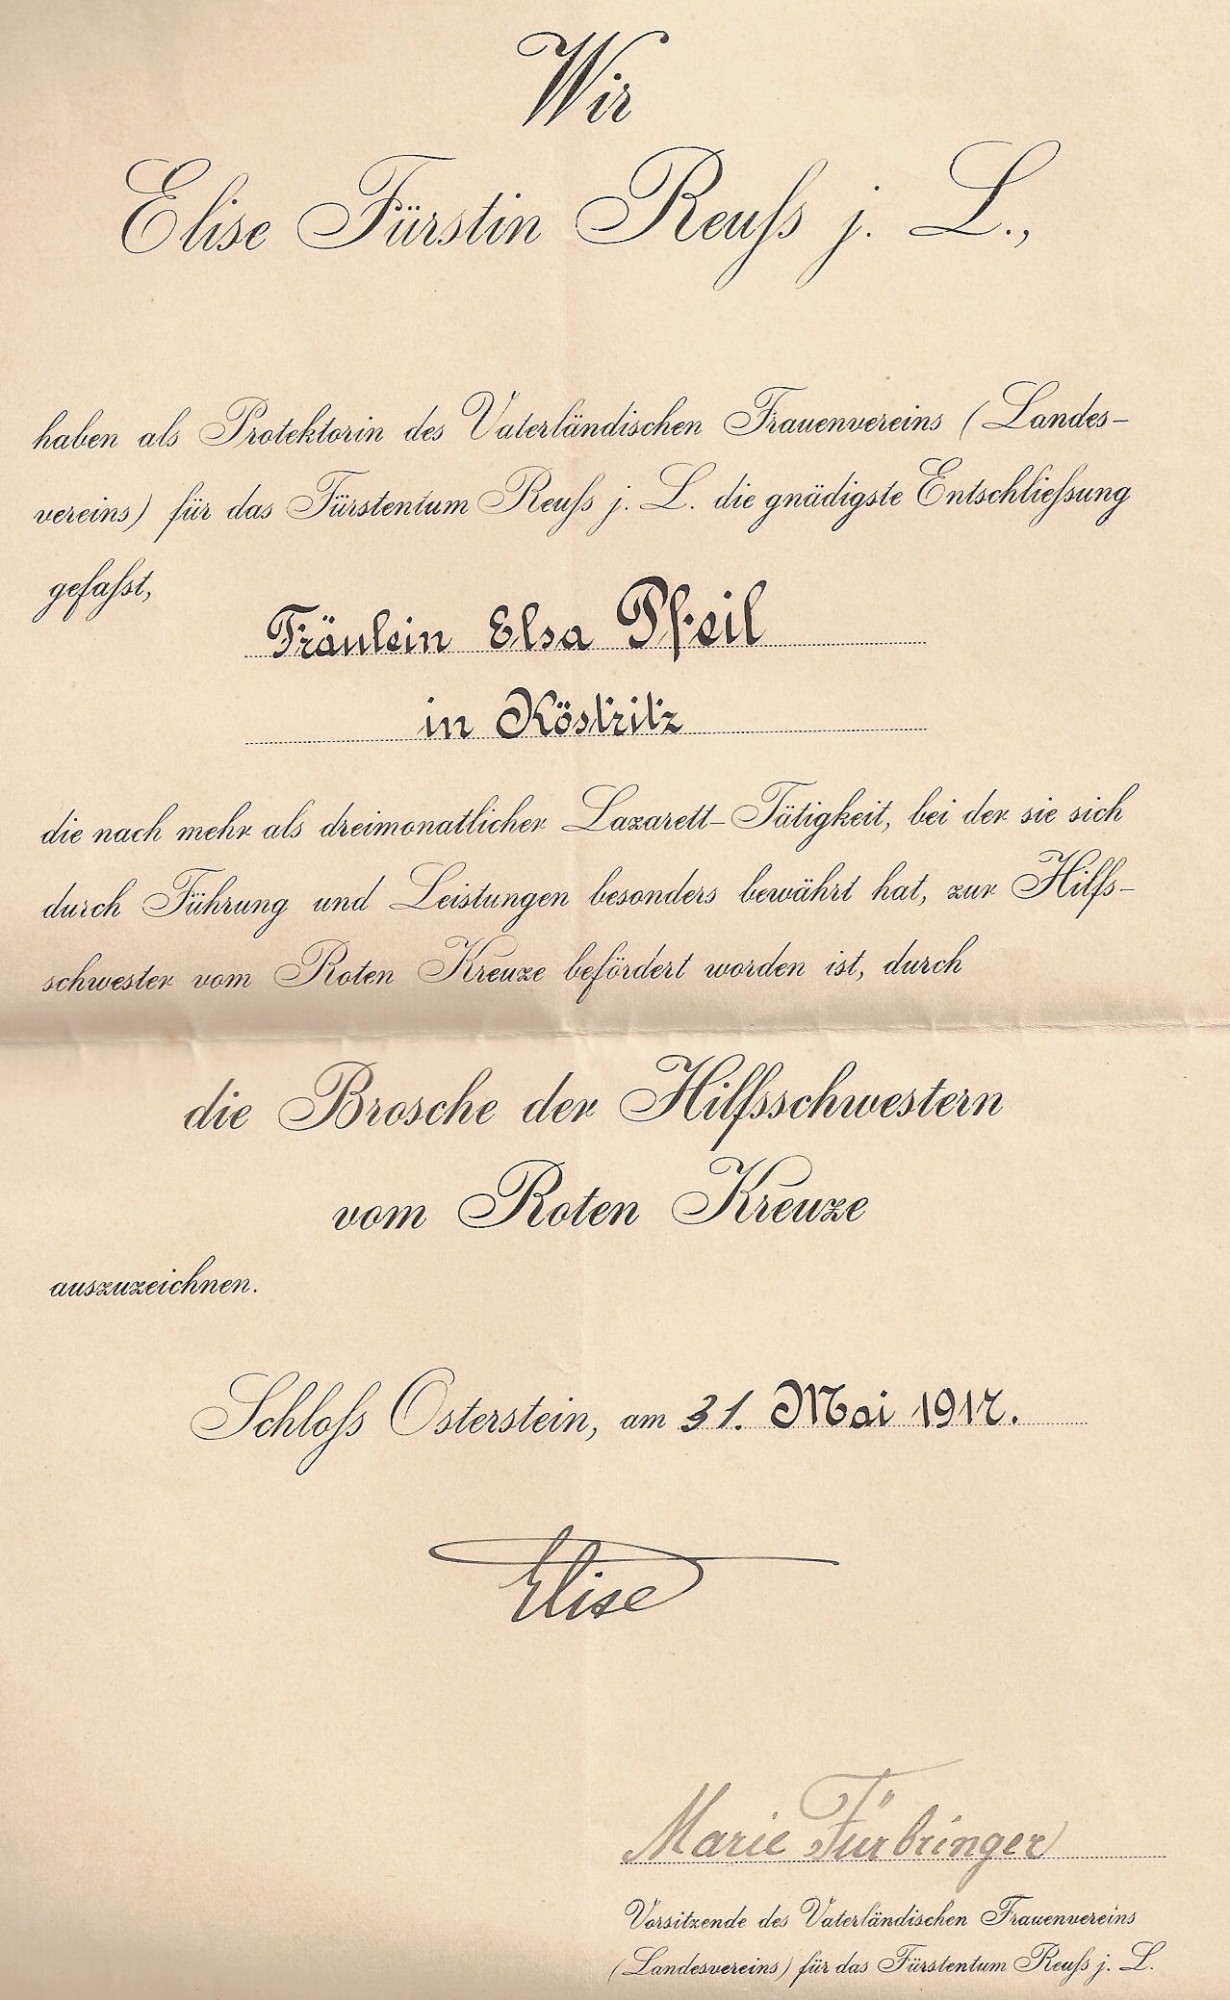 Wir
Elise Fürstin Reuſs j. L.,
haben als Protektorin des Vaterländischen Frauenvereins (Landes-
vereins) für das Fürstentum Reuſs j. L. die gnädigste Entschlieſsung
gefaſst,
Fräulein Elsa Pfeil
in Köstritz
die nach mehr als dreimonatlicher Lazarett-Tätigkeit, bei der sie sich
durch Führung und Leistungen besonders bewährt hat, zur Hilfs-
schwester vom Roten Kreuze befördert worden ist, durch
die Brosche der Hilfsschwestern
vom Roten Kreuze
auszuzeichnen.
Schloſs Osterstein, am 31. Mai 1917.
Elise
Marie Fürbringer
Vorsitzende des Vaterländischen Frauenvereins
(Landesvereins) für das Fürstentum Reuſs j. L.